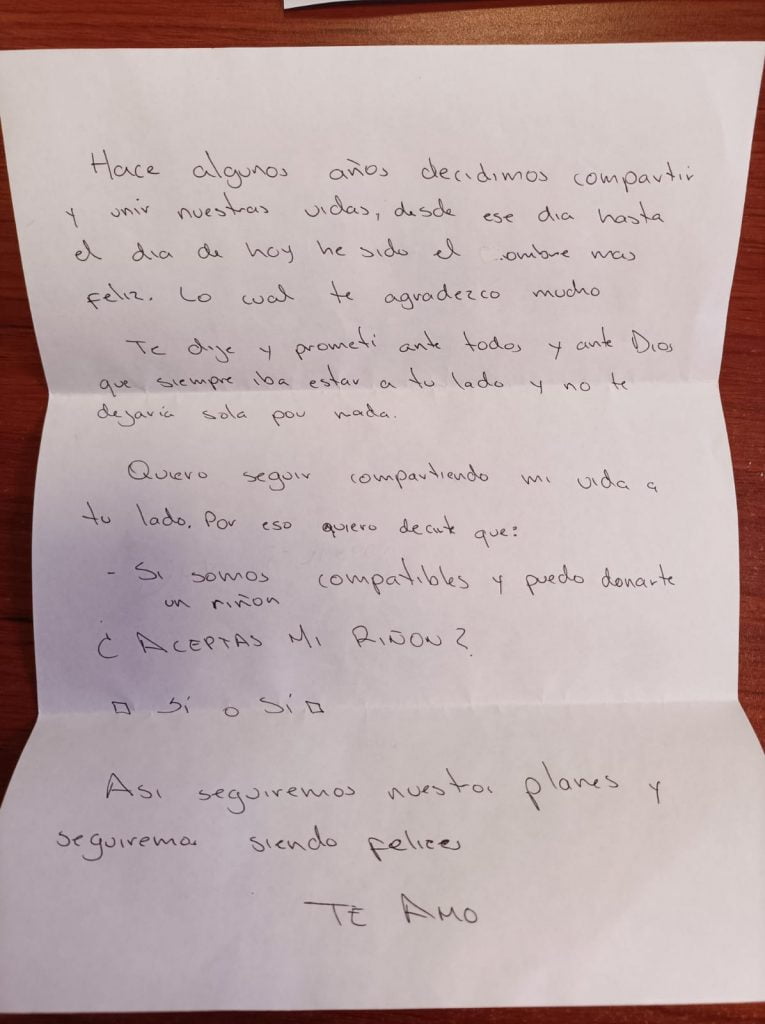 Hace algunos años decidimos compartir
y unir nuestras vidas, desde ese dia hasta
el dia de hoy he sido el ombre mas
feliz. Lo cual te agradezco mucho
Te dije y prometi ante todos y ante Dios
que siempre iba estar a tu lado y no te
dejaria sola por nada.
Quiero seguir compartiendo mi vida a
tu lado. Por eso quiero decirte que:
- Si somos compatibles y puedo donarte
un riñon
¿ ACEPTAS MI RIÑON?
□ Sí o Sí □
Asi seguiremos nuestros planes y
seguiremos siendo felices
TE AMO